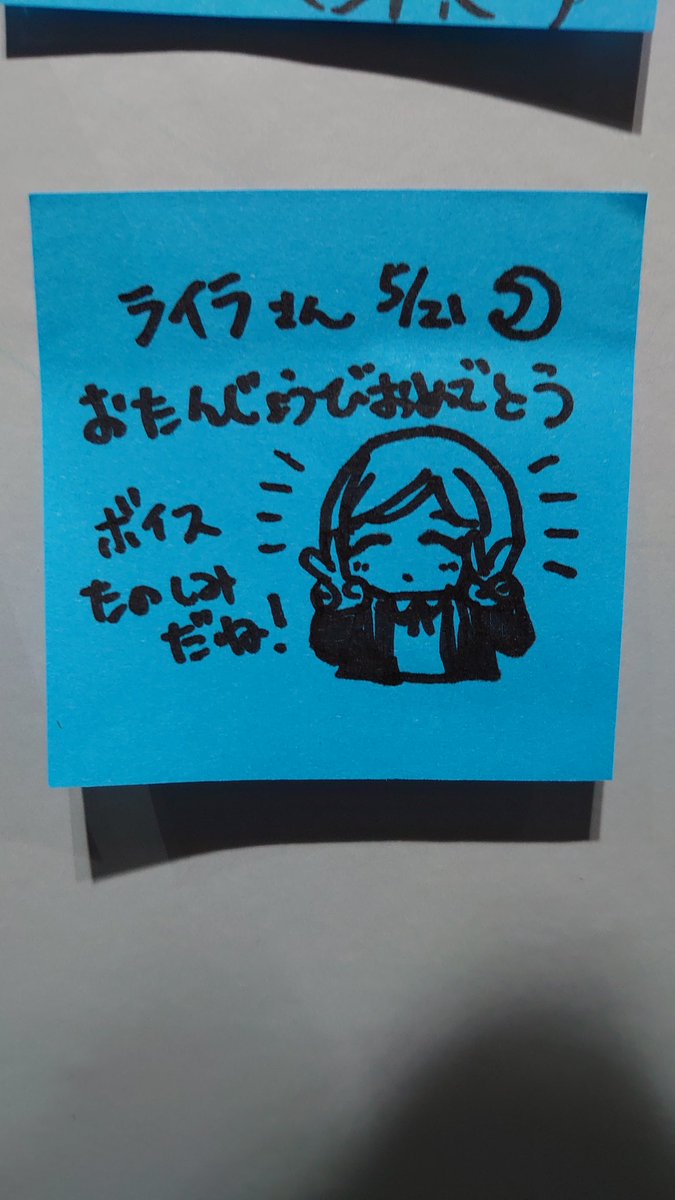 ライラさん 5/21
おたんじょうびおめでとう
ボイス
たのしみ
だね!